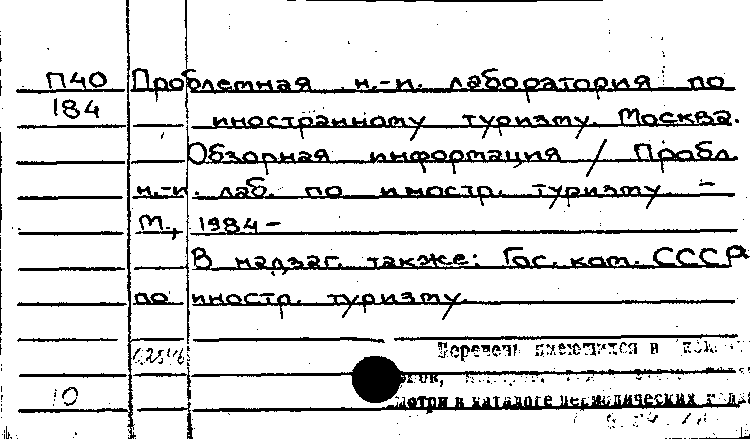 П40 Проблемная н.-и. лаборатория по
184 иностранному туризму. Москва.
Обзорная информация / Пробл.
н.-и. лаб. по иностр. туризму. -
М., 1984-
В надзаг. также: Гос. ком. СССР
по иностр. туризму.
Перечень имеющихся в
10 смотри в каталоге периодических